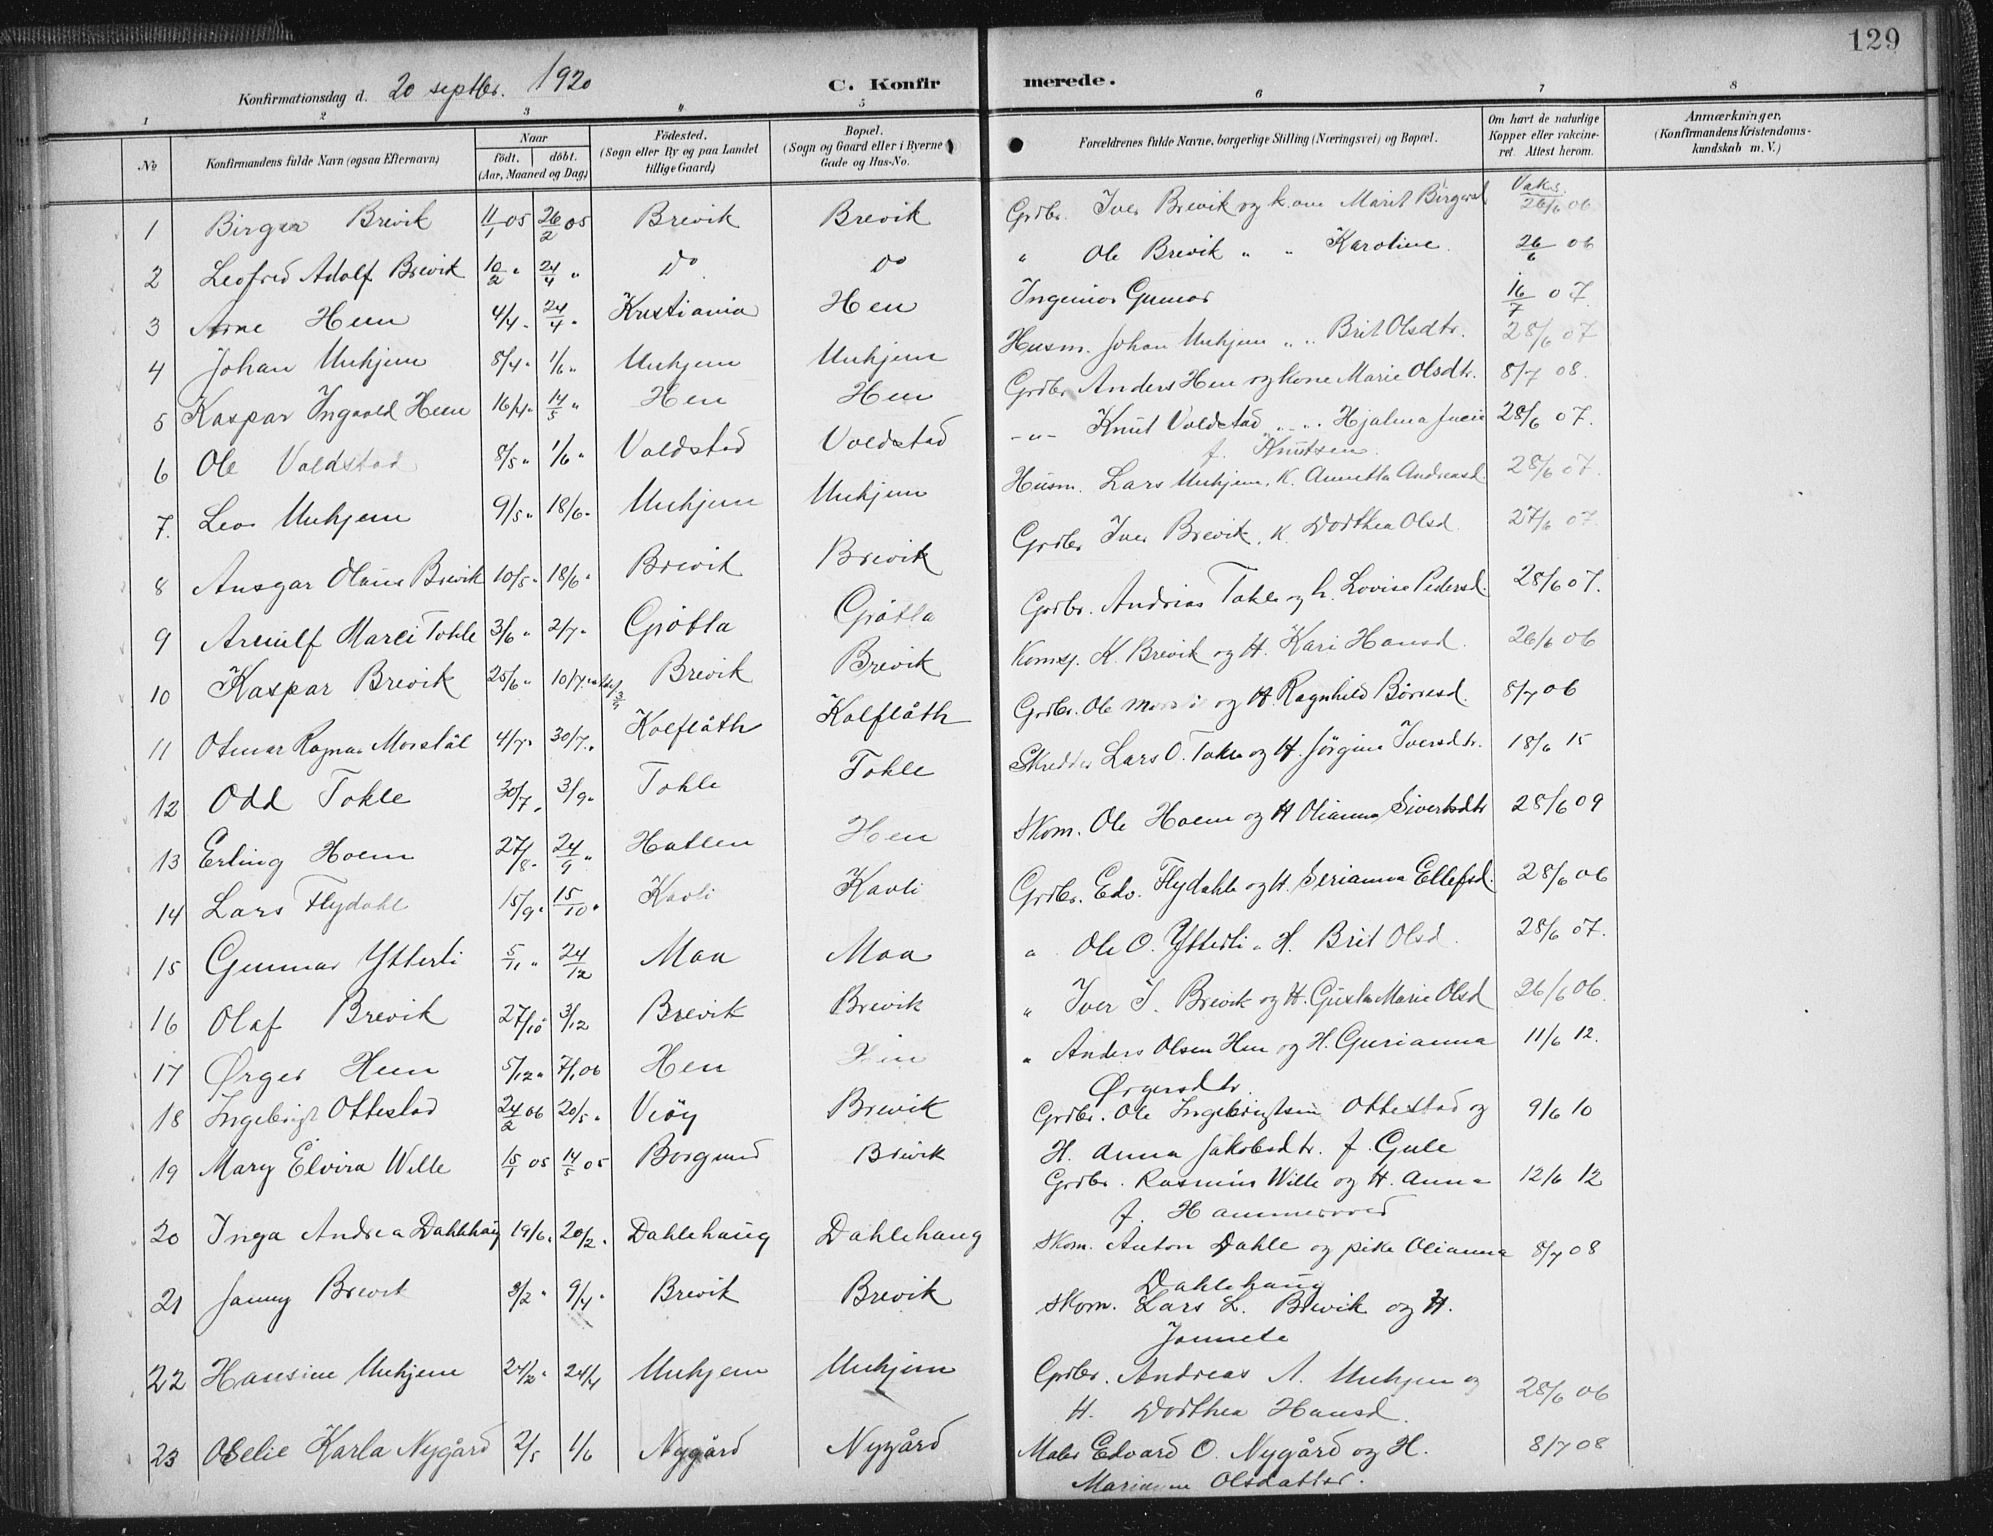 129
Konfirmationsdag d. 20 septbr. 1920 C. Konfirmerede.
1 2 3 4 5 6 7 8
No Konfirmandens fulde Navn (ogsaa Efternavn) Naar födt. döbt. (Aar, Maaned og Dag) Födested. (Sogn eller By og paa Landet tillige Gaard) Bopæl. (Sogn og Gaard eller i Byerne Gade og Hus-No. Forældrenes fulde Navne, borgerlige Stilling (Næringsvei) og Bopæl. Om havt de naturlige Kopper eller vakcineret. Attest herom. Anmærkninger. (Konfirmandens Kristendomskundskab m. V.)
1 Birger Brevik 11/1 05 26/2 05 Brevik Brevik Grdbr. Iver Brevik og kone Marit Birgersd Vaks. 26/6 06
2 Leofred Adolf Brevik 10/2 " 24/4 " Do Do " Ole Brevik " " Karoline 26/6 06
3 Arne Heen 4/4 " 24/4 " Kristiania Hen Ingeniør Gunnar 16/7 07
4 Johan Unhjem 8/4 " 1/6 " Unhjem Unhjem Husm. Johan Unhjem " " Brit Olsdtr. 28/6 07
5 Kaspar Ingvald Heen 16/4 " 14/5 " Hen Hen Grdbr Anders Hen og kone Marie Olsdtr. 8/7 08.
6 Ole Voldstad 8/5 " 1/6 " Voldstad Voldstad -"- Knut Voldstad " " Hjalma
f. Knutsen 28/6 07.
7. Leo Unhjem 9/5 " 18/6 " Unhjem Unhjem Husm. Lars Unhjem, K. Annetta Andreasd 28/6 07.
8 Ansgar Olaus Brevik 10/5 " 18/6 " Brevik Brevik Grdbr Iver Brevik, K. Dorthea Olsd. 27/6 07.
9 Arnulf Tokle 3/6 " 2/7 " Grötta Grötta Grdbr. Andreas Tokle og h. Lovise Pedersd. 28/6 07.
10 Kaspar Brevik 25/6 " 10/7 Brevik Brevik K. Brevik og H. Kari Hansd. 26/6 06
11 Otmar Ragnar Morstöl 4/7 " 30/7 " Kolflåth Kolflåth Grdbr. Ole og H. Ragnhild 8/7 06
12 Odd Tokle 30/7 " 3/9 " Tokle Tokle Skredder Lars O. Tokle og H. Jörgine Iversdtr. 18/6 15
13 Erling Hoem 27/8 " 24/9 " Hatlen Hen Skom. Ole Hoem og H Olianna Sivertsdtr 28/6 09
14 Lars Flydahl 15/9 " 15/10 " Kavli Kavli Grdbr. Edv. Flydahl og H. Serianna Ellefsd. 28/6 06
15 Gunnar Ytterli 5/11 " 24/12 Moa Moa " Ole O. Ytterli " H. Brit Olsd. 28/6 07.
16 Olaf Brevik 27/10 " 3/12 Brevik Brevik " Iver I. Brevik og H. Gusta Marie Olsd 26/6 06.
17 Ørger Heen 5/12 " 7/1 06 Hen Hen " Anders Olsen Hen og H. Gurianna
Ørgersdtr. 11/6 12.
18 Ingebrigt Ottestad 24/2 06 20/5 " Veöy Brevik Grdbr. Ole Ingebrigtsen Ottestad og
H. Anna Jakobsdtr. f. Gule 9/6 10
19 Mary Elvira Wille 15/1 05 14/5 05 Borgund Brevik Grdbr. Rasmus Wille og H. Anna
f. Hammervold 12/6 12
20 Inga Andrea Dahlehaug 19/6 " 20/2 " Dahlehaug Dahlehaug Skom. Anton Dahle og pike Olianna
Dahlehaug 8/7 08
21 Janny Brevik 3/2 " 9/4 " Brevik Brevik Skom. Lars L. Brevik og H.
Jonnete
22 Hansine Unhjem 24/2 " 24/4 Unhjem Unhjem Grdbr. Andreas A. Unhjem og
H. Dorthea Hansd. 28/6 06
23 Oselie Karla Nygård 2/5 1/6 Nygård Nygård Maler Edvard O. Nygård og H.
Marianne Olsdatter. 8/7 08